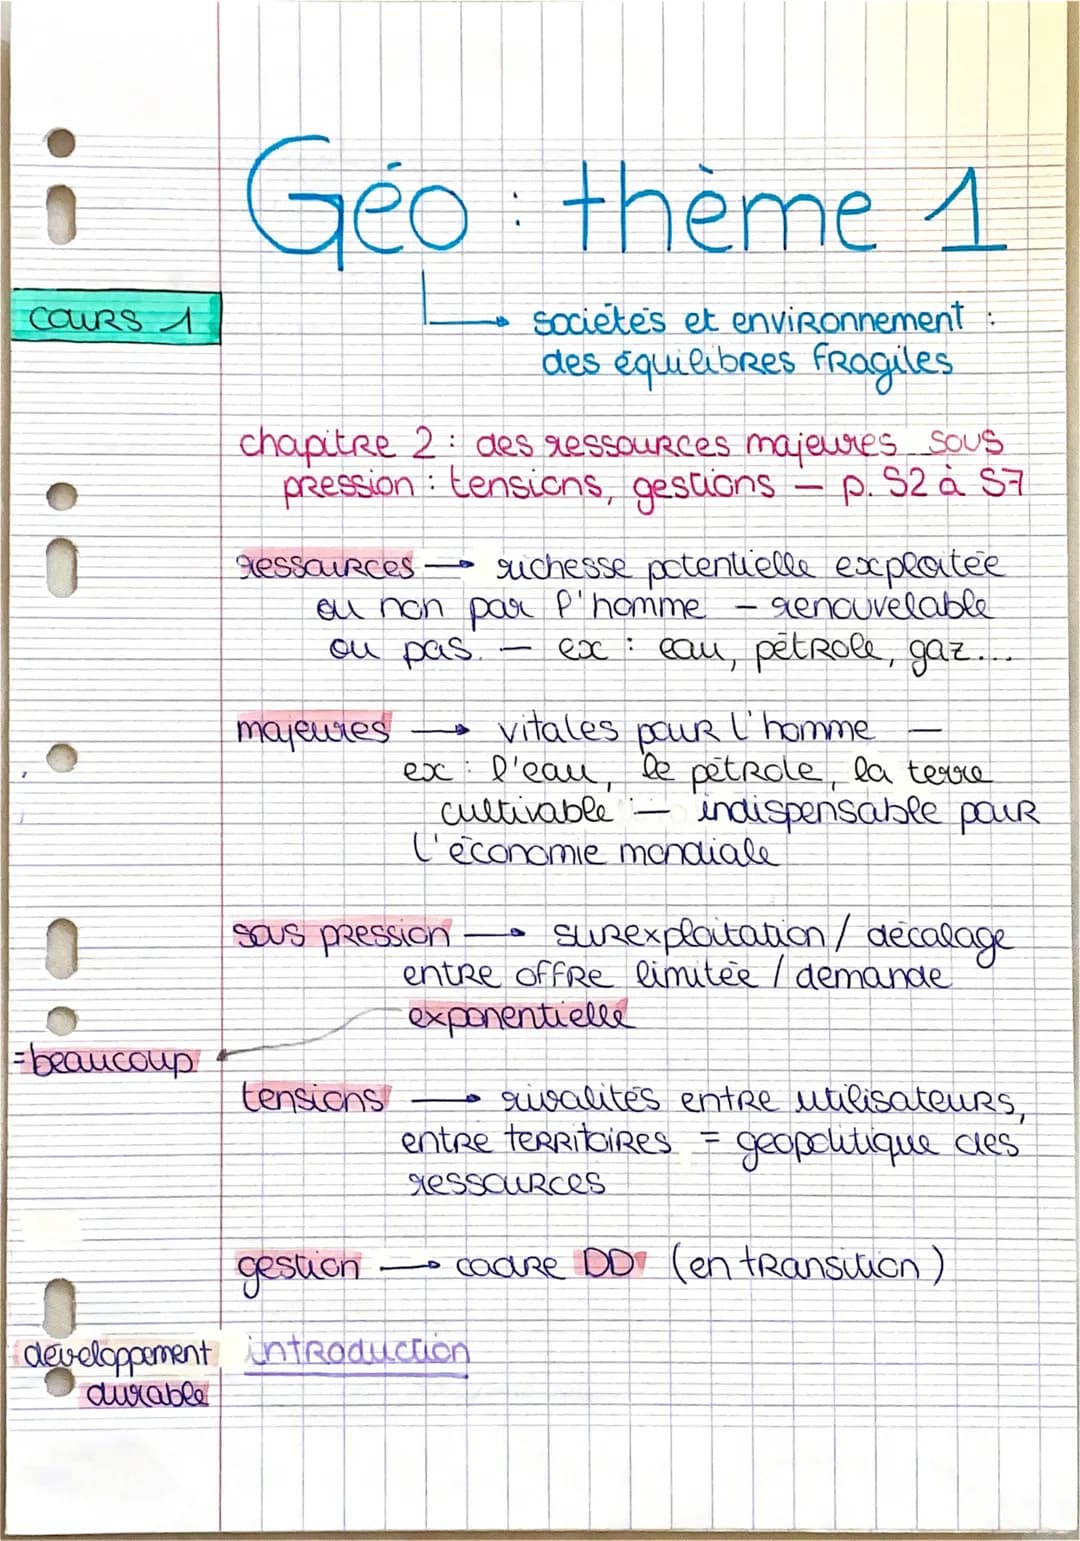 Géo : thème 1
cours 1
sociétés et environnement :
des équilibres fragiles
chapitre 2 : des ressources majeures sous
pression : tensions, gestions – p. 52 à 57
ressources → richesse potentielle exploitée
ou non par l'homme – renouvelable
ou pas. – ex : eau, pétrole, gaz...
majeures → vitales pour l'homme –
ex : l'eau, le pétrole, la terre
cultivable – indispensable pour
l'économie mondiale
sous pression → surexploitation / décalage
entre offre limitée / demande
exponentielle
=beaucoup
tensions → rivalités entre utilisateurs,
entre territoires = géopolitique des
ressources
gestion → cadre DD (en transition)
développement
durable
introduction